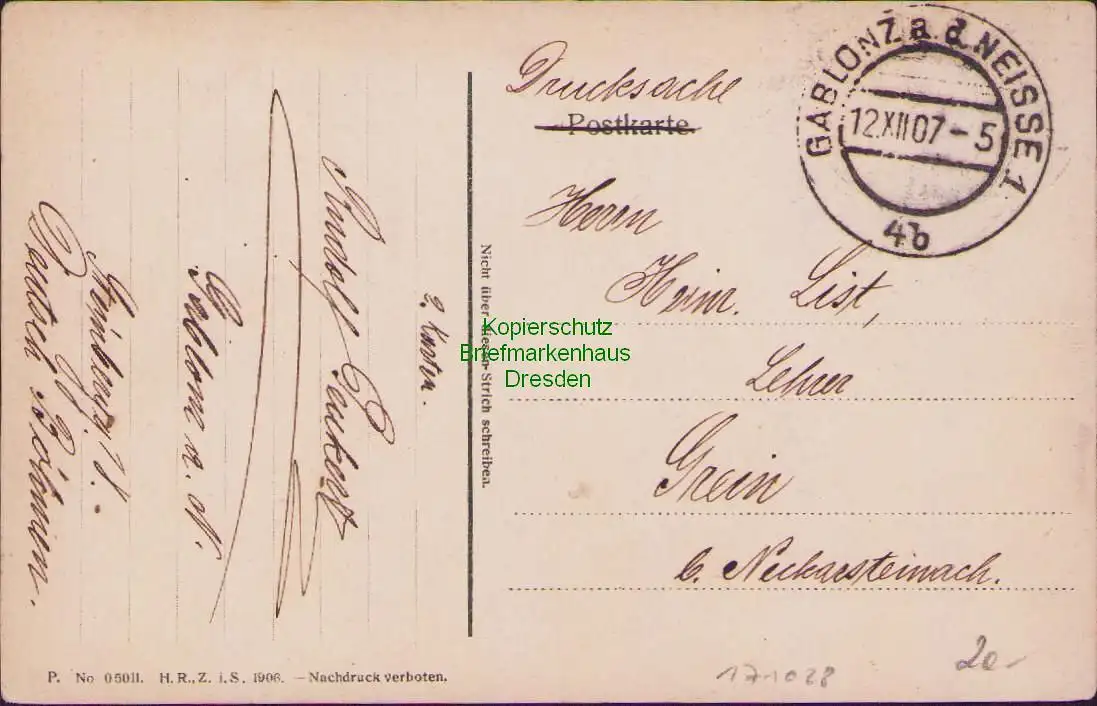 Drucksache
Postkarte.
GABLONZ a. d. NEISSE 1
12.XII.07-5
4b
Herrn
Heinr. List,
Lehrer
Grein
b. Neckarsteinach.
Nicht über diesen Strich schreiben.
Kopierschutz
Briefmarkenhaus
Dresden
2. Karten.
Rudolf
Gablonz a. N.
Deutsch Böhmen.
P. No 05011. H. R., Z. i. S. 1906. — Nachdruck verboten.
171028
20-